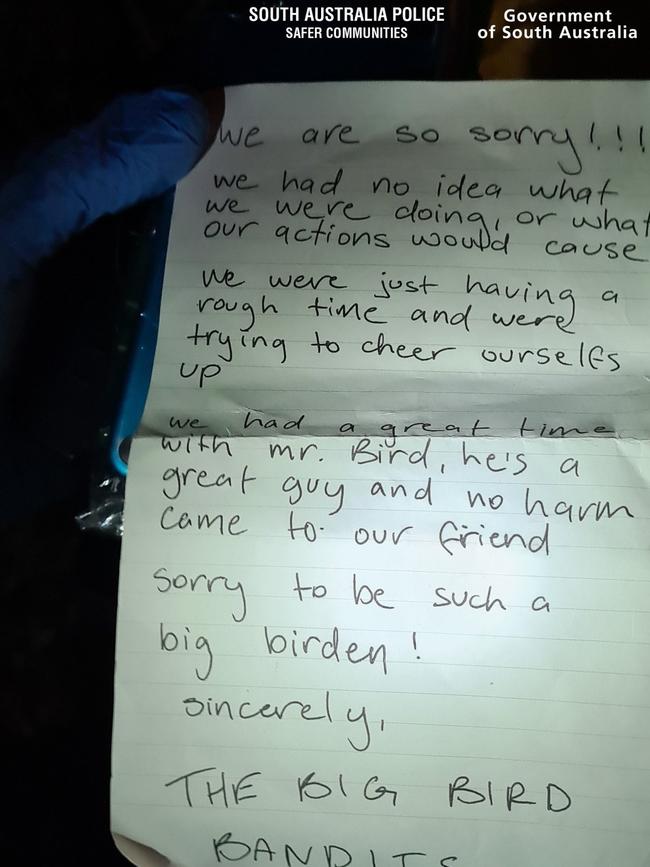 SOUTH AUSTRALIA POLICE
SAFER COMMUNITIES
Government
of South Australia
we are so sorry!!!
we had no idea what
we were doing, or what
our actions would cause
we were just having a
rough time and were
trying to cheer ourselfs
up
we had a great time
with mr. Bird, he's a
great guy and no harm
came to our friend
sorry to be such a
big birden!
sincerely,
THE BIG BIRD
BANDITS